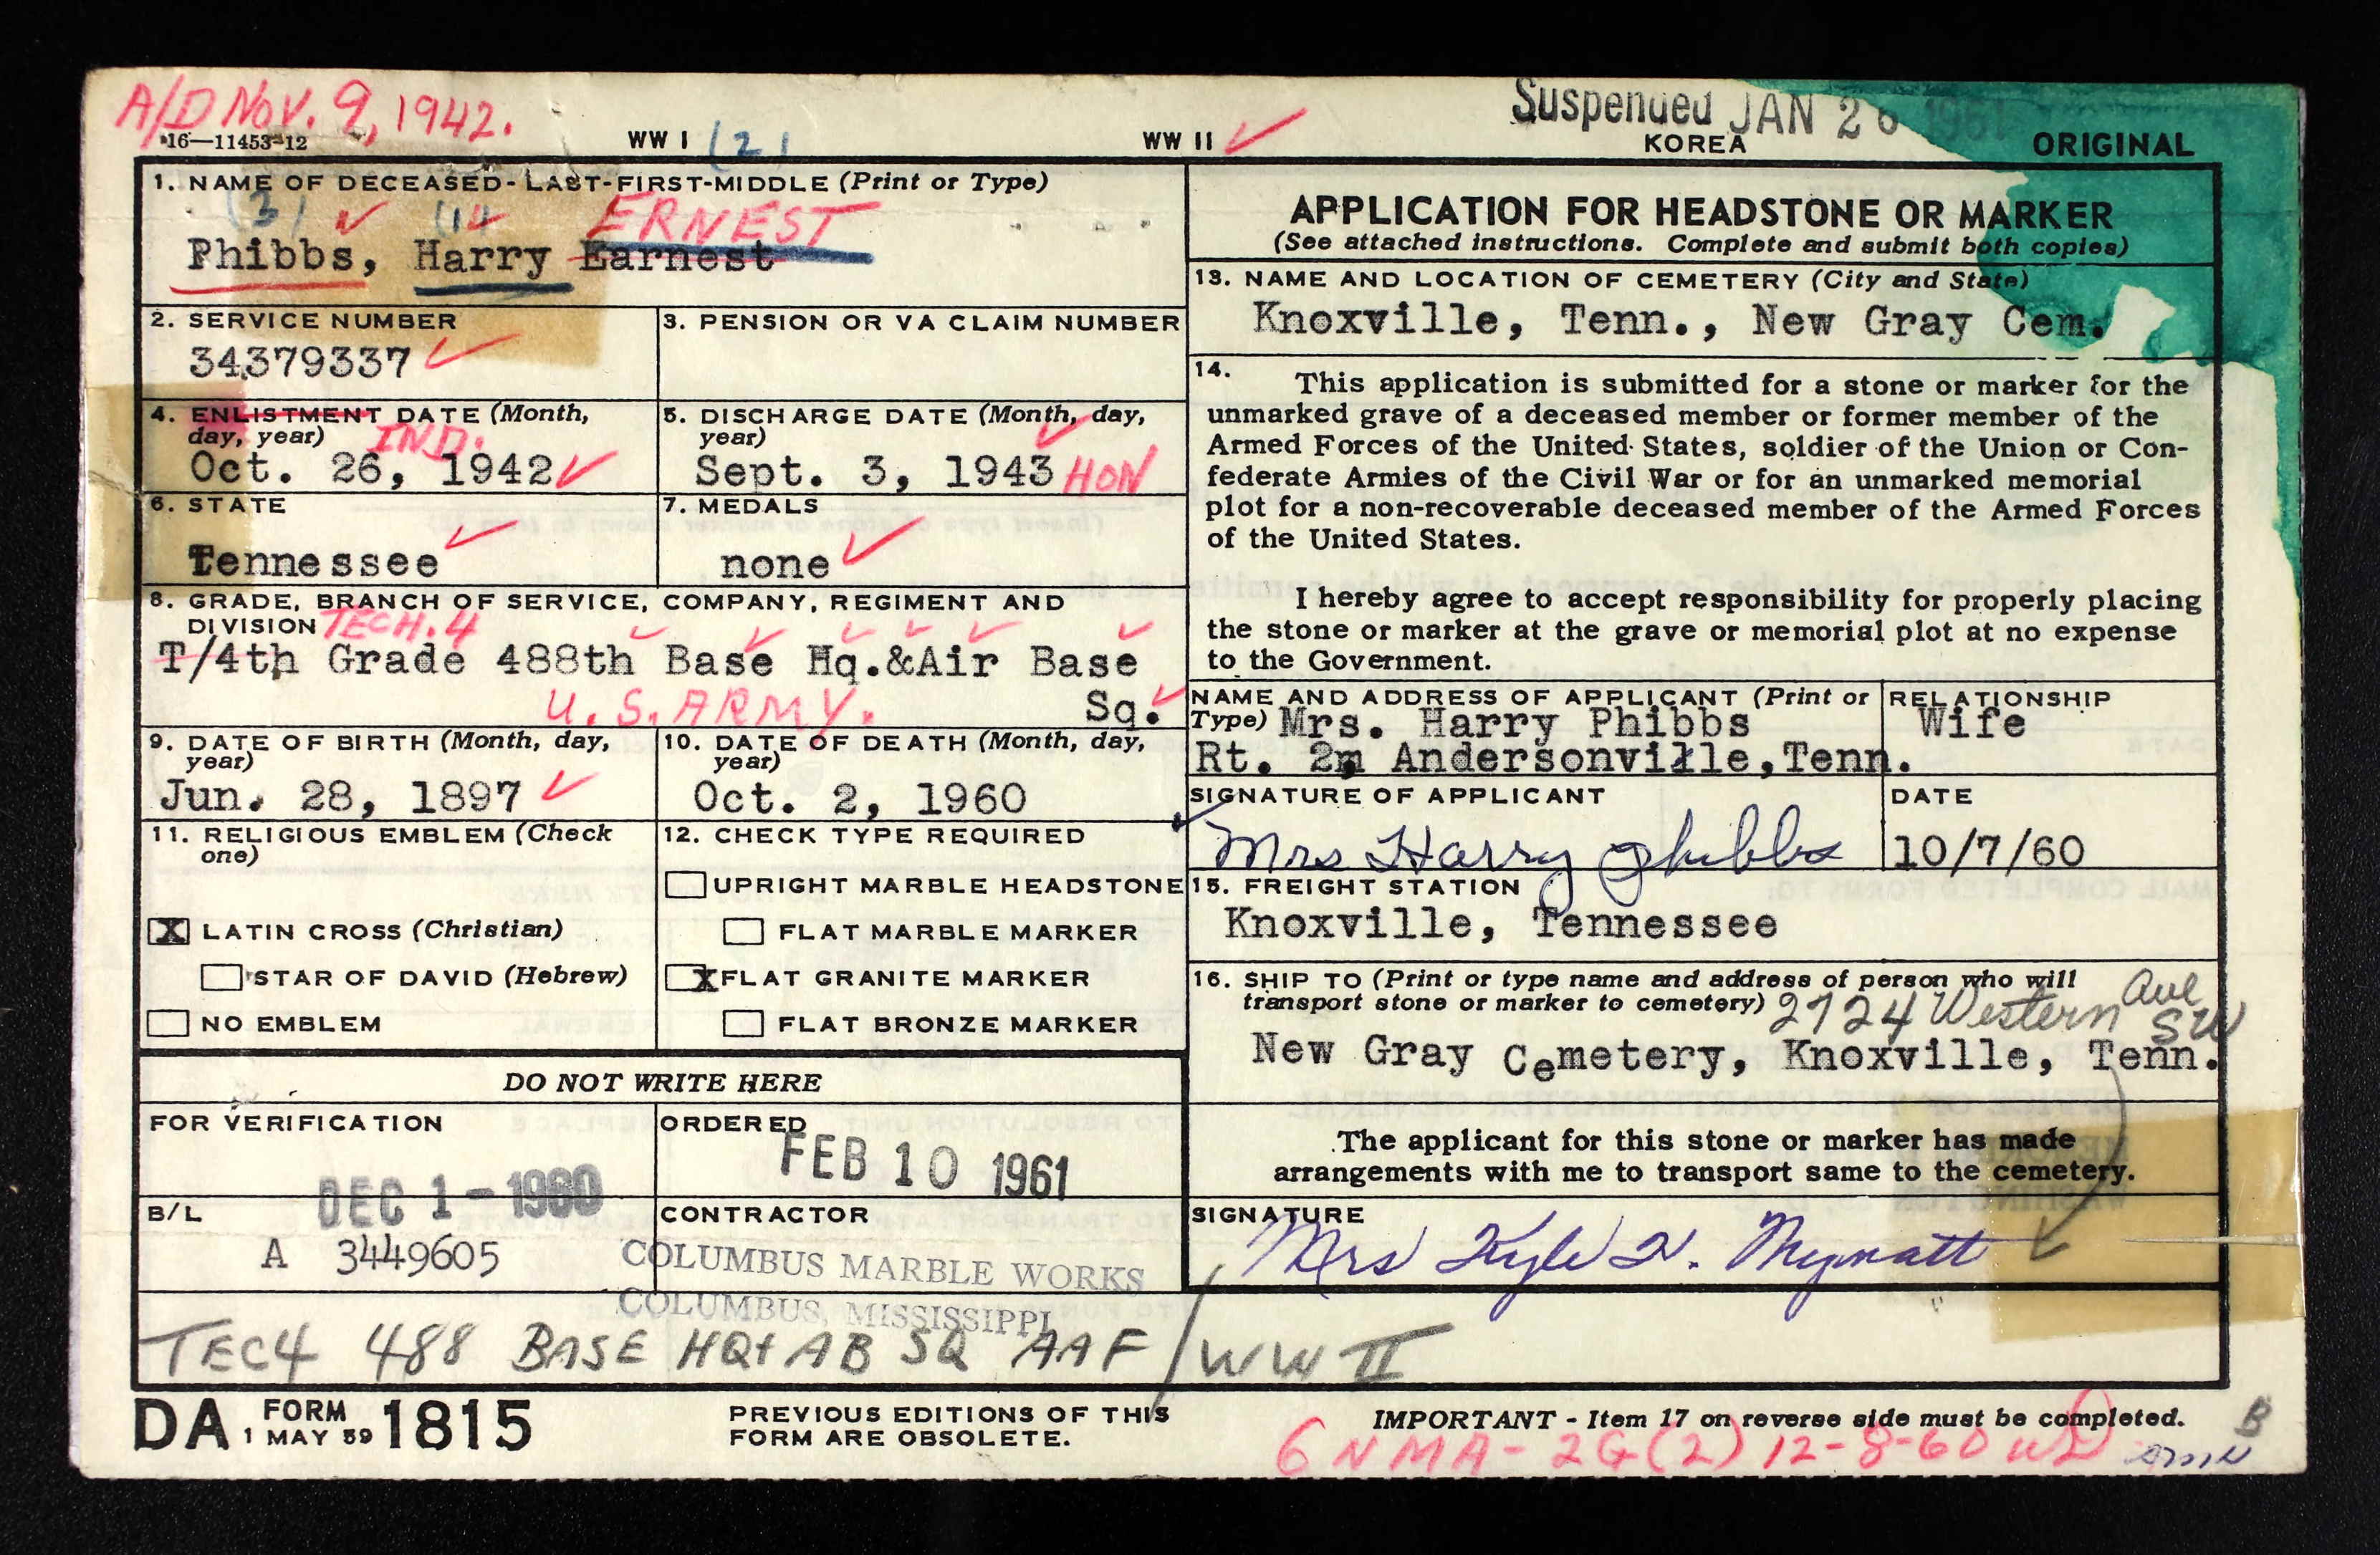 A/D NOV. 9, 1942.
Suspended JAN 26 1961
16—11453-12
WW I
(2)
WW II
KOREA
ORIGINAL
1. NAME OF DECEASED-LAST-FIRST-MIDDLE (Print or Type)
(3) (1) ERNEST
Phibbs, Harry Earnest
2. SERVICE NUMBER
34379337
3. PENSION OR VA CLAIM NUMBER
4. ENLISTMENT DATE (Month,
day, year) IND.
Oct. 26, 1942
5. DISCHARGE DATE (Month, day,
year)
Sept. 3, 1943 HON
6. STATE
Tennessee
7. MEDALS
none
8. GRADE, BRANCH OF SERVICE, COMPANY, REGIMENT AND
DIVISION TECH. 4
T/4th Grade 488th Base Hq.&Air Base
U.S. ARMY. Sq.
9. DATE OF BIRTH (Month, day,
year)
Jun. 28, 1897
10. DATE OF DEATH (Month, day,
year)
Oct. 2, 1960
11. RELIGIOUS EMBLEM (Check
one)
X LATIN CROSS (Christian)
STAR OF DAVID (Hebrew)
NO EMBLEM
12. CHECK TYPE REQUIRED
UPRIGHT MARBLE HEADSTONE
FLAT MARBLE MARKER
X FLAT GRANITE MARKER
FLAT BRONZE MARKER
DO NOT WRITE HERE
FOR VERIFICATION
DEC 1 - 1960
ORDERED
FEB 10 1961
B/L
A 3449605
CONTRACTOR
COLUMBUS MARBLE WORKS
COLUMBUS, MISSISSIPPI
APPLICATION FOR HEADSTONE OR MARKER
(See attached instructions. Complete and submit both copies)
13. NAME AND LOCATION OF CEMETERY (City and State)
Knoxville, Tenn., New Gray Cem.
14.
This application is submitted for a stone or marker for the
unmarked grave of a deceased member or former member of the
Armed Forces of the United States, soldier of the Union or Con-
federate Armies of the Civil War or for an unmarked memorial
plot for a non-recoverable deceased member of the Armed Forces
of the United States.
I hereby agree to accept responsibility for properly placing
the stone or marker at the grave or memorial plot at no expense
to the Government.
NAME AND ADDRESS OF APPLICANT (Print or
Type) Mrs. Harry Phibbs
Rt. 2, Andersonville, Tenn.
RELATIONSHIP
Wife
SIGNATURE OF APPLICANT
Mrs Harry Phibbs
DATE
10/7/60
15. FREIGHT STATION
Knoxville, Tennessee
16. SHIP TO (Print or type name and address of person who will
transport stone or marker to cemetery) 2724 Western Ave
SW
New Gray Cemetery, Knoxville, Tenn.
The applicant for this stone or marker has made
arrangements with me to transport same to the cemetery.
SIGNATURE
Mrs Kyle H. Mynatt
TEC4 488 BASE HQ+AB SQ AAF / WW II
DA FORM 1815
1 MAY 59
PREVIOUS EDITIONS OF THIS
FORM ARE OBSOLETE.
IMPORTANT - Item 17 on reverse side must be completed.
6 NMA-2G(2) 12-8-60
B